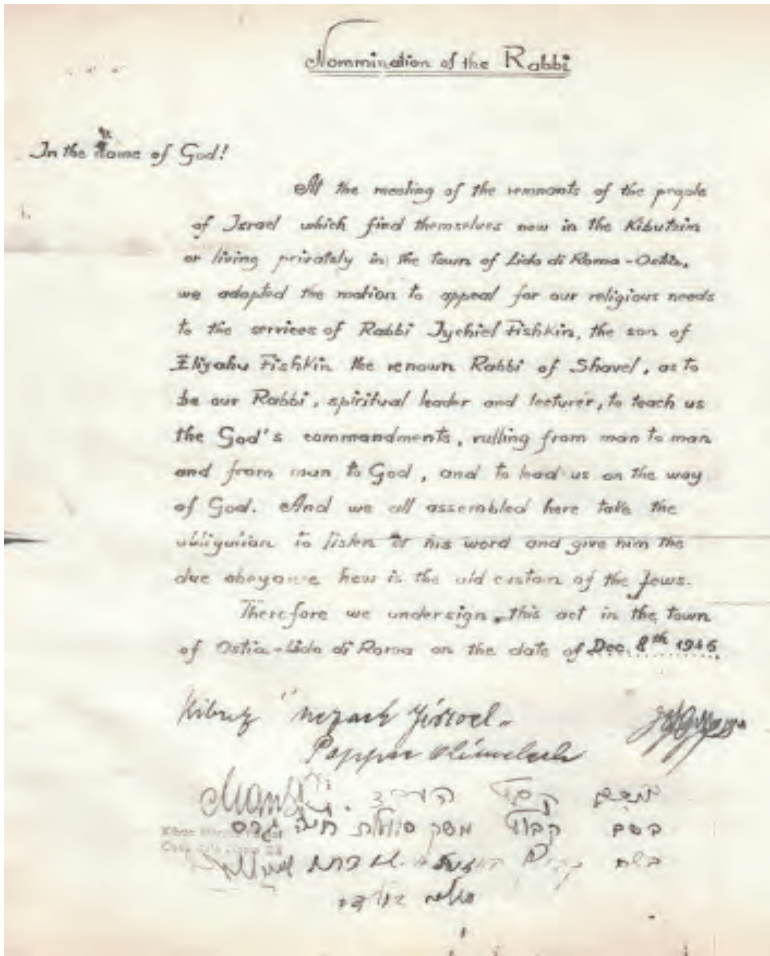 Nommination of the Rabbi
In the Name of God!
At the meeting of the remnants of the people
of Israel which find themselves now in the Kibutzim
or living privately in the town of Lido di Roma - Ostia,
we adopted the motion to appeal for our religious needs
to the services of Rabbi Jychiel Fishkin, the son of
Eliyahu Fishkin the renown Rabbi of Shavel, as to
be our Rabbi, spiritual leader and lecturer, to teach us
the God's commandments, rulling from man to man
and from man to God, and to lead us on the way
of God. And we all assembled here take the
obligation to listen to his word and give him the
due obeyance how is the old custom of the Jews.
Therefore we undersign this act in the town
of Ostia - Lido di Roma on the date of Dec. 8th 1945
Kibuz "Nezach Jisroel"
בשם קבוץ
בשם קבוץ
בשם